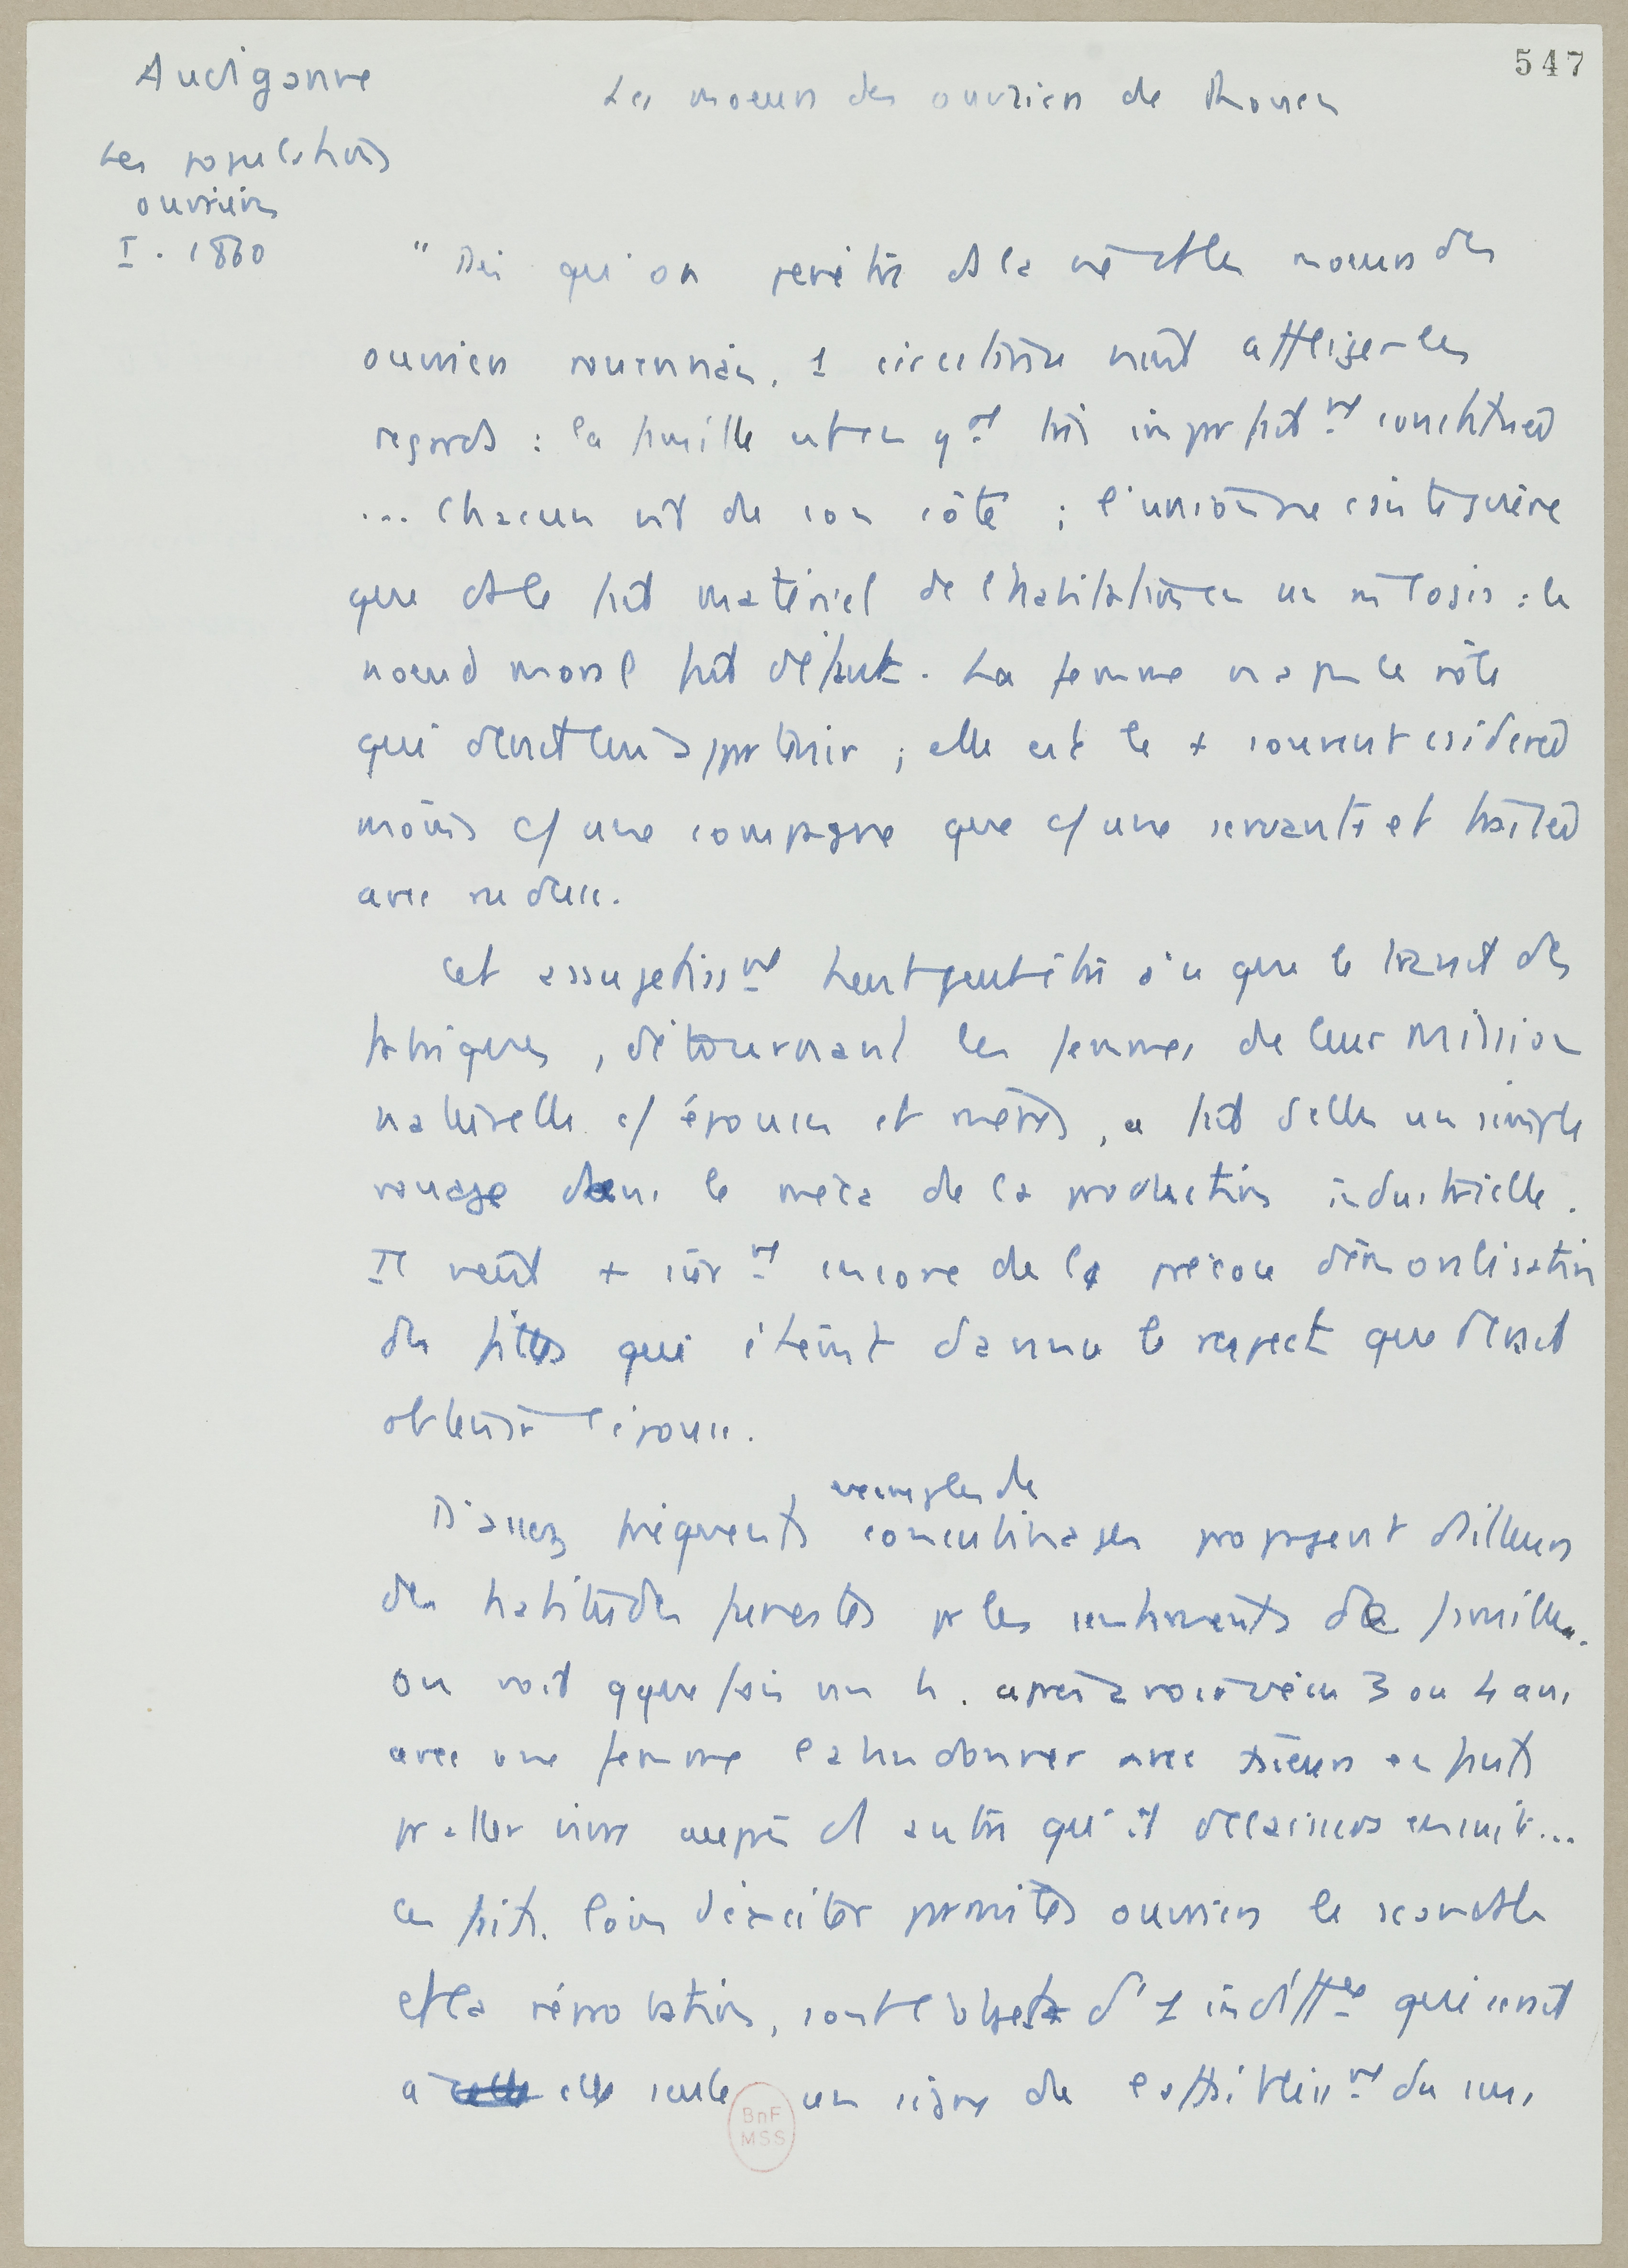 547
Audiganne
Les populations
ouvrières
I. 1860
Les moeurs des ouvriers de Rouen
"Dès qu'on pénètre ds la véritables moeurs des
ouvriers rouennais, 1 circ vient affliger les
regards : la famille est en gal très imparfait nt constituée
... Chacun vit de son côté ; l'union ne csiste guère
que ds le fait matériel de l'habitation en un m logis : le
noeud moral fait défaut. La femme n'a pas le rôle
qui devrait lui appartenir ; elle est le + souvent csidérée
moins c/ une compagne que c/ une servante et traitée
avec rudesse.
Cet assujetiss nt tient peut-être à ce que le travail des
fabriques, détournant les femmes de leur mission
naturelle c/ épouses et mères, a fait d'elles un simple
rouage dans le méca de la production industrielle.
Il vient + sûr nt encore de la précoce démoralisation
des filles qui éteint d'avance le respect que devrait
obtenir l'épouse.
D'assez fréquents exemples de concubinages propagent d'ailleurs
des habitudes funestes pr les sentiments de famille.
On voit qque fois un h. après avoir vécu 3 ou 4 ans
avec une femme l'abandonner avec plusieurs enfants
pr aller vivre auprès d'1 autre qu'il délaissera ensuite...
Ces faits, loin d'exciter parmi les ouvriers le scandale
et la réprobation, sont l'objet d'1 indiffce qui serait
à elle seule un signe de l'affaibliss nt du sens
BnF
MSS